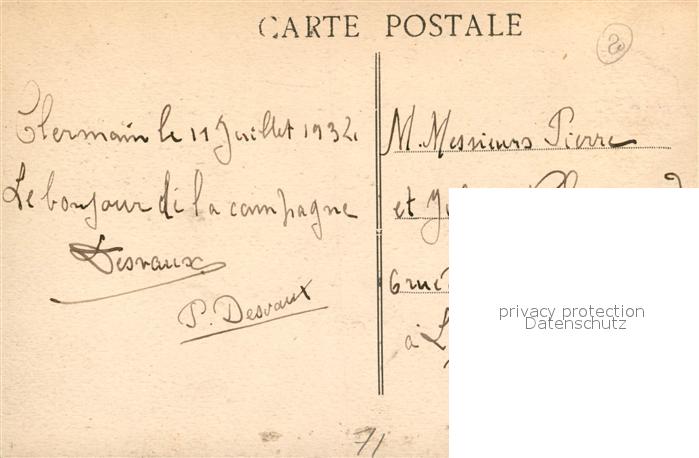 CARTE POSTALE
2
Clermain le 11 Juillet 1932
Le bonjour di la campagne
Desvaux
P. Desvaux
71
M. Messieurs Pierre
et
6 rue
à L
privacy protection
Datenschutz